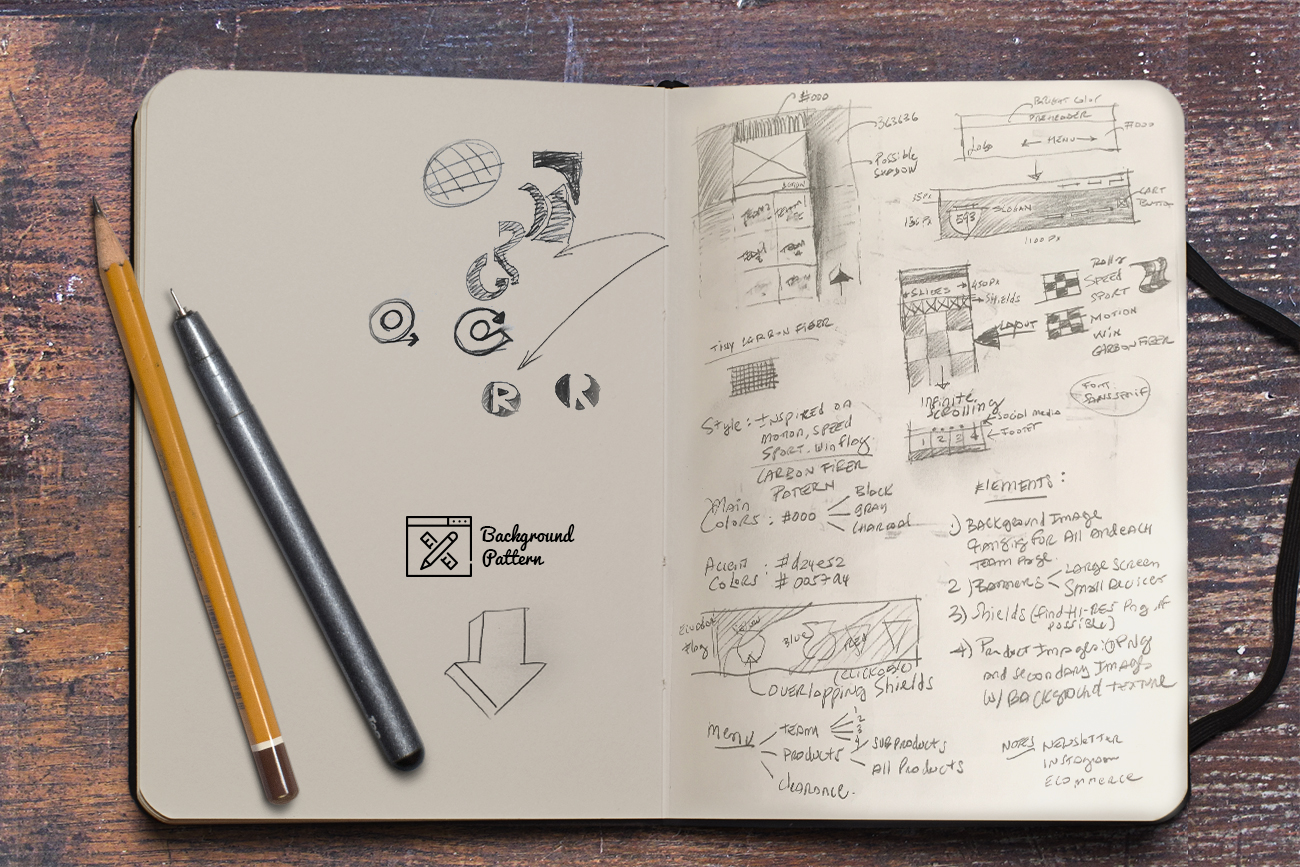 R
R
Background
Pattern
#000
363636
Possible
SHADOW
BUTTON
TEAM 2
TEAM 1
TEAM 4
Tiny CARBON FIBER
Style: INSPIRED ON
motion, SPEED
SPORT. Win Flag
CARBON FIBER
PATERN
Main
Colors : #000
Black
GRAY
CHARCOAL
Accent
Colors : #d24e52
# 0057a4
Flag
yellow
BLUE
RED
(clickable)
OVERLAPPING Shields
Menu
TEAM
1
2
3
4
PRODUCTS
SUBPRODUCTS
All Products
Clearance.
BRIGHT Color
PREHEADER
Logo
MENU
#000
35Px
135 Px
593
SLOGAN
CART
Button
1100 Px
SLIDES
450Px
SHIELDS
LAYOUT
Rally
SPEED
SPORT
MOTION
Win
CARBON FIBER
Infinite
Scrolling
FONT:
SANSSERIF
Social media
FOOTER
1 2 3 4
ELEMENTS:
1) BACKGROUND IMAGE
FOR All And each
Team Page.
2) Banners
LARGE Screen
Small Devices
3) Shields (find Hi-RES Png if
possible)
4) Product Images: PNG
and secondary IMAGE
W/ BACKGROUND TEXTURE
NOTES
NEWSLETTER
INSTAGRAM
ECOMMERCE